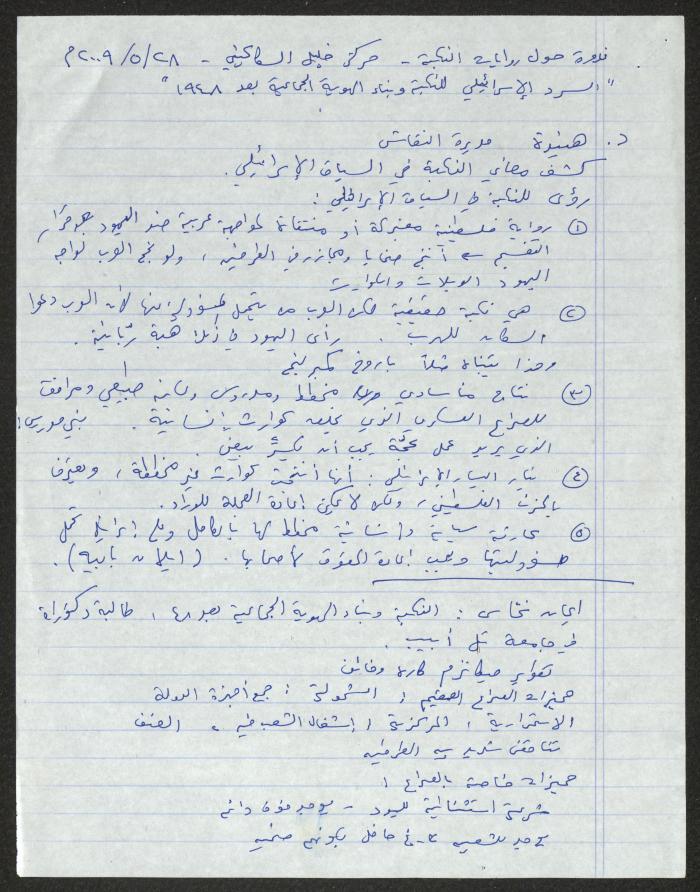 ندوة حول روايات النكبة - مركز خليل السكاكيني - ٢٨/٥/٢٠٠٩م
"السرد الإسرائيلي للنكبة وبناء الهوية الجماعية بعد ١٩٤٨"
د. هنيدة مديرة النقاش
كشف معاني النكبة في السياق الإسرائيلي.
رؤى للنكبة في السياق الإسرائيلي:
① رواية فلسطينية مفبركة أو منتقاة لمواجهة عربية ضد اليهود بعد قرار
التقسيم ← أنتج ضحايا ومجازر في الطرفين، ولو نجح العرب لواجه
اليهود الويلات والكوارث
② هي نكبة حقيقية لكن العرب من يتحمل المسؤولية عنها لأن العرب دعوا
السكان للهرب. رأى اليهود في ذلك هبة ربّانية.
وهذا يتبناه مثلاً باروخ كمبرلنج
③ نتاج مأساوي مخطط ومدروس ولكنه طبيعي ومرافق
للصراع العسكري الذي يخلف كوارث إنسانية. بني موريس:
الذي يريد عمل عجّة يجب أن يكسر بيض.
④ تيار اليسار الإسرائيلي: أنها أنتجت كوارث غير مخططة، ويعترف
بالحزن الفلسطيني، ولكن لا يمكن إعادة العجلة للوراء.
⑤ كارثة سياسية وإنسانية مخطط لها بالكامل وعلى إسرائيل تحمل
مسؤوليتها ويجب إعادة الحقوق لأصحابها. (إيلان بابيه).
إيمان نحاس: النكبة وبناء الهوية الجماعية بعد ٤٨، طالبة دكتوراة
في جامعة تل أبيب.
مميزات الصراع العقيم: الشمولي: جمع أجهزة الدولة
الاستمرارية، المركزية، إشغال الشعبين، العنف
تناقض شديد بين الطرفين
مميزات خاصة بالصراع:
شرعية استثنائية لليهود - يوجد خوف دائم
يوجد للشعبين حافل بكونهم ضحية